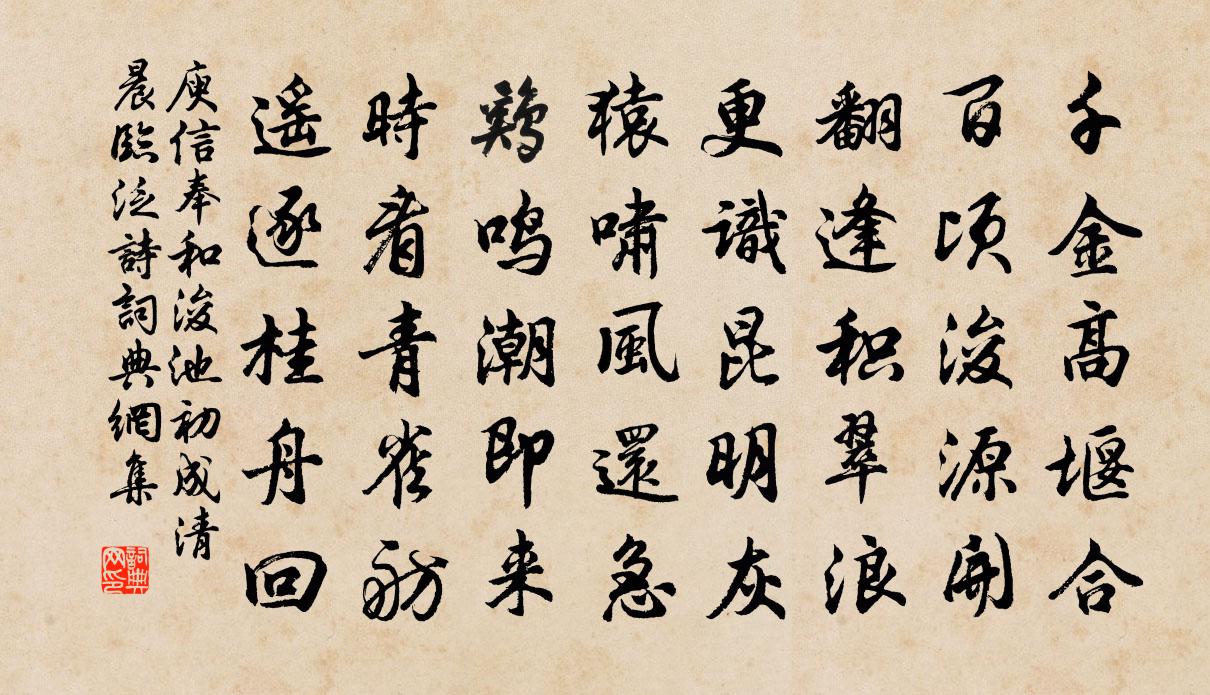 千金高堰合
百顷浚源開
翻逢积翠浪
更識昆明灰
猿啸風還急
鸡鸣潮即来
時看青雀舫
遥逐桂舟回
庾信奉和浚池初成清
晨臨泛詩詞典網集
詞典网印